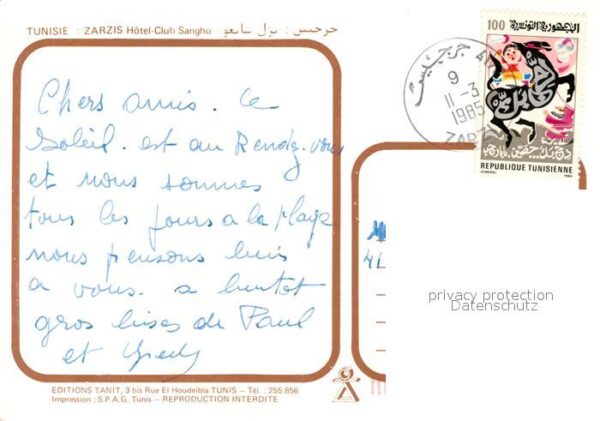 TUNISIE : ZARZIS Hôtel-Club Sangho جرجيس : نزل سانغو
Chers amis. Le
Soleil. est au Rendez-vous
et nous sommes
tous les jours a la plage
nous pensons bien
a vous. a bientot
gros bises de Paul
et
EDITIONS TANIT, 3 bis Rue El Houdeibia TUNIS – Tél. : 255.856
Impression : S.P.A.G. Tunis – REPRODUCTION INTERDITE
جرجيس
9
11-3
1985
ZARZIS
100 الجمهورية التونسية
REPUBLIQUE TUNISIENNE
4 L
privacy protection
Datenschutz